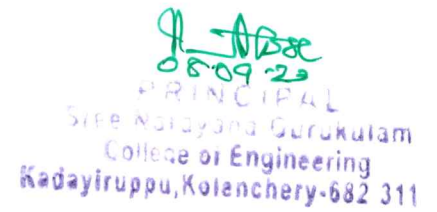 08-09-23
PRINCIPAL
Sree Narayana Gurukulam
College of Engineering
Kadayiruppu,Kolenchery-682 311